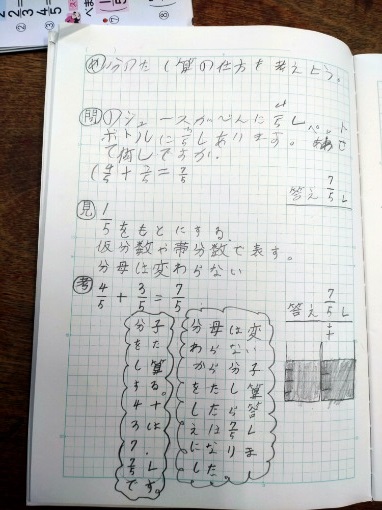 2/2 = 2
3/5 = 4/5
②
③
⑦
⑧
め 分数のたし算の仕方を考えよう。
問 ① ジュースがびんに 4/5 L ペット
ボトルに 3/5 L あります。 あわせ
て何Lですか。
(4/5 + 3/5 = 7/5
答え 7/5 L
見 1/5 をもとにする
仮分数や帯分数で表す。
分母は変わらない
考 4/5 + 3/5 = 7/5
答え 7/5 L
分母は変
わらない
から分子
をたし算
したら答
えは 7/5 L
になりま
した
分子
をた
し算
する。
4+
3は
7.
7/5 L
です。